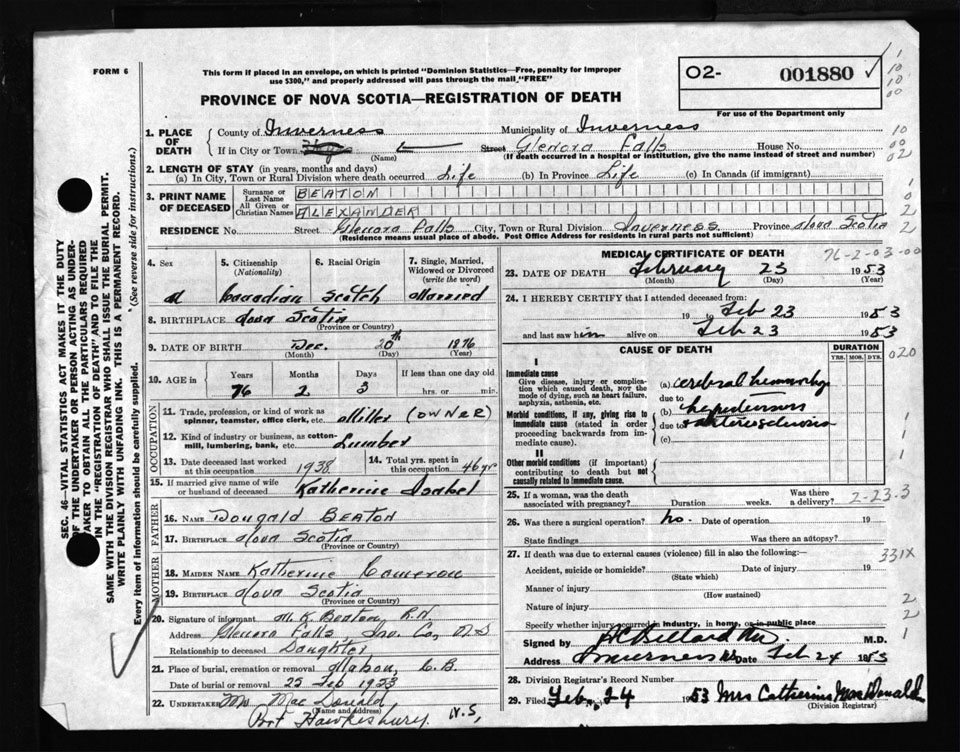 FORM 6
This form if placed in an envelope, on which is printed "Dominion Statistics—Free, penalty for improper
use $300," and properly addressed will pass through the mail, "FREE"
PROVINCE OF NOVA SCOTIA—REGISTRATION OF DEATH
O2- 001880 ✓
For use of the Department only
SEC. 46—VITAL STATISTICS ACT MAKES IT THE DUTY
OF THE UNDERTAKER OR PERSON ACTING AS UNDER-
TAKER TO OBTAIN ALL THE PARTICULARS REQUIRED
IN THE "REGISTRATION OF DEATH" AND TO FILE THE
SAME WITH THE DIVISION REGISTRAR WHO SHALL ISSUE THE BURIAL PERMIT.
WRITE PLAINLY WITH UNFADING INK. THIS IS A PERMANENT RECORD.
Every item of information should be carefully supplied. (See reverse side for instructions.)
1. PLACE OF DEATH
County of Inverness Municipality of Inverness
If in City or Town (Name) Street Glenora Falls House No.
(If death occurred in a hospital or institution, give the name instead of street and number)
2. LENGTH OF STAY (in years, months and days)
(a) In City, Town or Rural Division where death occurred Life (b) In Province Life (c) In Canada (if immigrant)
3. PRINT NAME OF DECEASED
Surname or Last Name BEATON
All Given or Christian Names ALEXANDER
RESIDENCE No. Street Glenora Falls City, Town or Rural Division Inverness Province Nova Scotia
(Residence means usual place of abode. Post Office Address for residents in rural parts not sufficient)
4. Sex M
5. Citizenship (Nationality) Canadian
6. Racial Origin Scotch
7. Single, Married, Widowed or Divorced (write the word) Married
8. BIRTHPLACE Nova Scotia
(Province or Country)
9. DATE OF BIRTH Dec. 20th 1876
(Month) (Day) (Year)
10. AGE in Years 76 Months 2 Days 3 If less than one day old hrs. or min.
OCCUPATION
11. Trade, profession, or kind of work as spinner, teamster, office clerk, etc. Miller (OWNER)
12. Kind of industry or business, as cotton-mill, lumbering, bank, etc. Lumber
13. Date deceased last worked at this occupation 1938 14. Total yrs. spent in this occupation 46 yrs
15. If married give name of wife or husband of deceased Katherine Isabel
FATHER
16. NAME Dougald BEATON
17. BIRTHPLACE Nova Scotia
(Province or Country)
MOTHER
18. MAIDEN NAME Katherine Cameron
19. BIRTHPLACE Nova Scotia
(Province or Country)
20. Signature of informant M. K. Beaton R.N.
Address Glenora Falls, Inv. Co, N.S
Relationship to deceased Daughter
21. Place of burial, cremation or removal Mabou, C.B.
Date of burial or removal 25 Feb 1953
22. UNDERTAKER Mr. MacDonald
(Name and Address)
Port Hawkesbury. N.S,
MEDICAL CERTIFICATE OF DEATH 76-2-03-00
23. DATE OF DEATH February 23 1953
(Month) (Day) (Year)
24. I HEREBY CERTIFY that I attended deceased from:
19 to Feb 23 1953
and last saw him alive on Feb 23 1953
CAUSE OF DEATH DURATION
YRS. MOS. DYS.
020
I
Immediate cause
Give disease, injury or complication which caused death, NOT the mode of dying, such as heart failure, asphyxia, asthenia, etc.
(a) cerebral hemorrhage
due to
Morbid conditions, if any, giving rise to immediate cause (stated in order proceeding backwards from immediate cause).
(b) hypertension
due to + arteriosclerosis
(c)
II
Other morbid conditions (if important) contributing to death but not causally related to immediate cause.
25. If a woman, was the death associated with pregnancy? Duration weeks. Was there a delivery? 2-23-3
26. Was there a surgical operation? no. Date of operation 19
State findings Was there an autopsy?
27. If death was due to external causes (violence) fill in also the following:— 331X
Accident, suicide or homicide? Date of injury 19
(State which)
Manner of injury
(How sustained)
Nature of injury
Specify whether injury occurred in industry, in home, or in public place
Signed by M.D.
Address Inverness NS Date Feb 24 1953
28. Division Registrar's Record Number
29. Filed Feb. 24 1953 Mrs Catherine MacDonald
(Division Registrar)